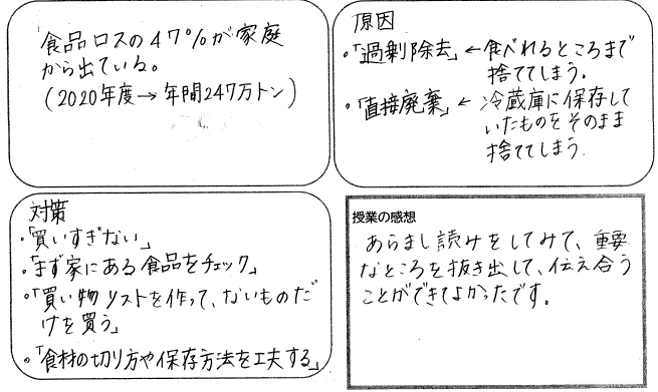 食品ロスの47%が家庭
から出ている。
(2020年度→年間247万トン)
原因
・「過剰除去」←食べれるところまで
捨ててしまう.
・「直接廃棄」←冷蔵庫に保存して
いたものをそのまま
捨ててしまう.
対策
・「買いすぎない」
・「まず家にある食品をチェック」
・「買い物リストを作って、ないものだ
けを買う」
・「食材の切り方や保存方法を工夫する」
授業の感想
あらまし読みをしてみて、重要
なところを抜き出して、伝え合う
ことができてよかったです.